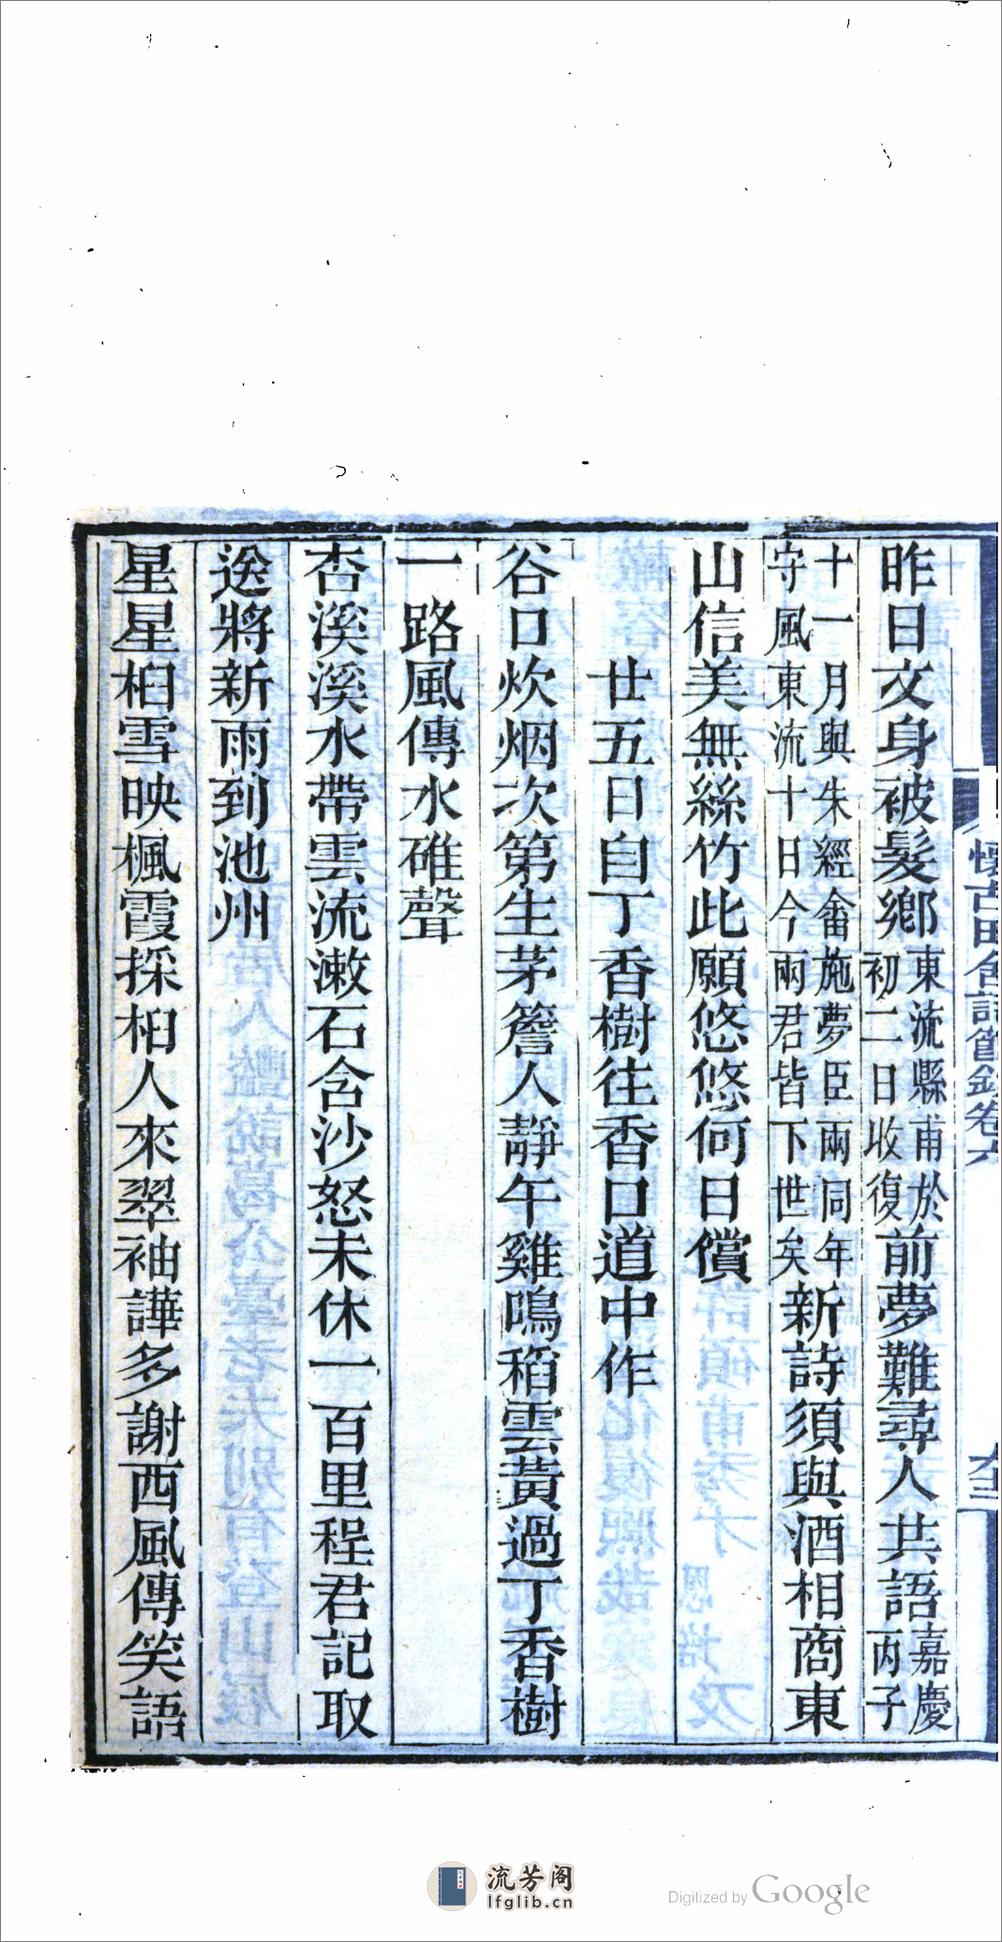 昨日文身被髮鄉東流縣甫於初二日收復前夢難尋人共語嘉慶丙子
十一月與朱經畬施夢臣兩同年守風東流十日今兩君皆下世矣新詩須與酒相商東
山信美無絲竹此願悠悠何日償
廿五日自丁香樹往香口道中作
谷口炊烟次第生茅簷人靜午雞鳴稻雲黃過丁香樹
一路風傳水碓聲
杏溪溪水帶雲流漱石含沙怒未休一百里程君記取
送將新雨到池州
星星桕雪映楓霞採桕人來翠袖譁多謝西風傳笑語
懷古田舍詩節鈔卷六
流芳阁
lfglib.cn
Digitized by Google